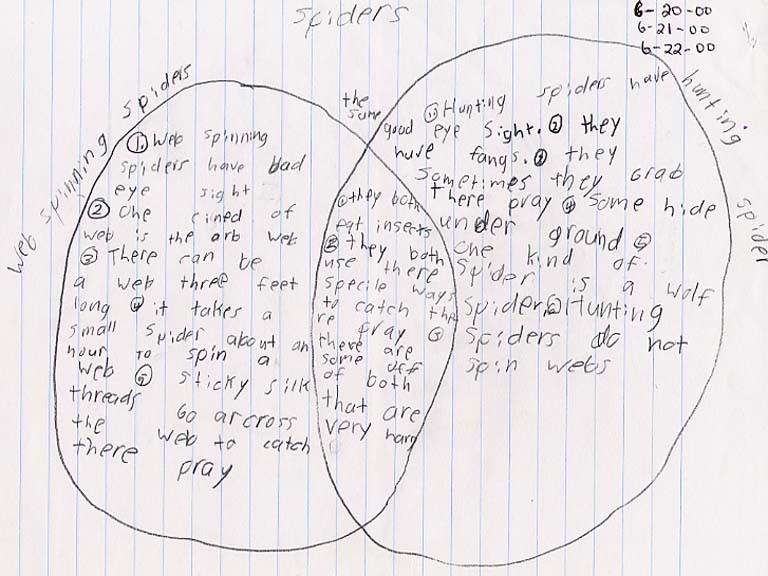 spiders
6-20-00
6-21-00
6-22-00
web spinning spiders
① Web spinning
spiders have bad
eye sight
② One cined of
web is the arb web
③ There can be
a web three feet
long ④ it takes a
small spider about an
hour to spin a
web ⑤ sticky silk
threads go arcross
the web to catch
there pray
the
same
① they both
eat insects
② they both
use there
specile ways
to catch the
re pray ③
there are
some off
of both
that are
very harry
hunting spider
① Hunting spiders have
good eye sight. ② they
have fangs. ③ they
sometimes they grab
there pray ④ some hide
under ground ⑤
one kind of
spider is a wolf
spider. ⑥ Hunting
spiders do not
spin webs